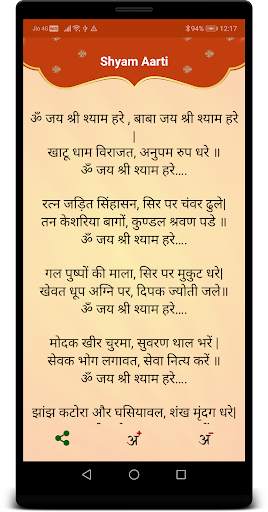 Jio 4G
94% 12:17
Shyam Aarti
ॐ जय श्री श्याम हरे , बाबा जय श्री श्याम हरे
|
खाटू धाम विराजत, अनुपम रुप धरे ॥
ॐ जय श्री श्याम हरे....
रत्न जड़ित सिंहासन, सिर पर चंवर ढुले|
तन केशरिया बागों, कुण्डल श्रवण पडे ॥
ॐ जय श्री श्याम हरे....
गल पुष्पों की माला, सिर पर मुकुट धरे|
खेवत धूप अग्नि पर, दिपक ज्योती जले॥
ॐ जय श्री श्याम हरे....
मोदक खीर चुरमा, सुवरण थाल भरें |
सेवक भोग लगावत, सेवा नित्य करें ॥
ॐ जय श्री श्याम हरे....
झांझ कटोरा और घसियावल, शंख मृदंग धरे|
अ+ अ-